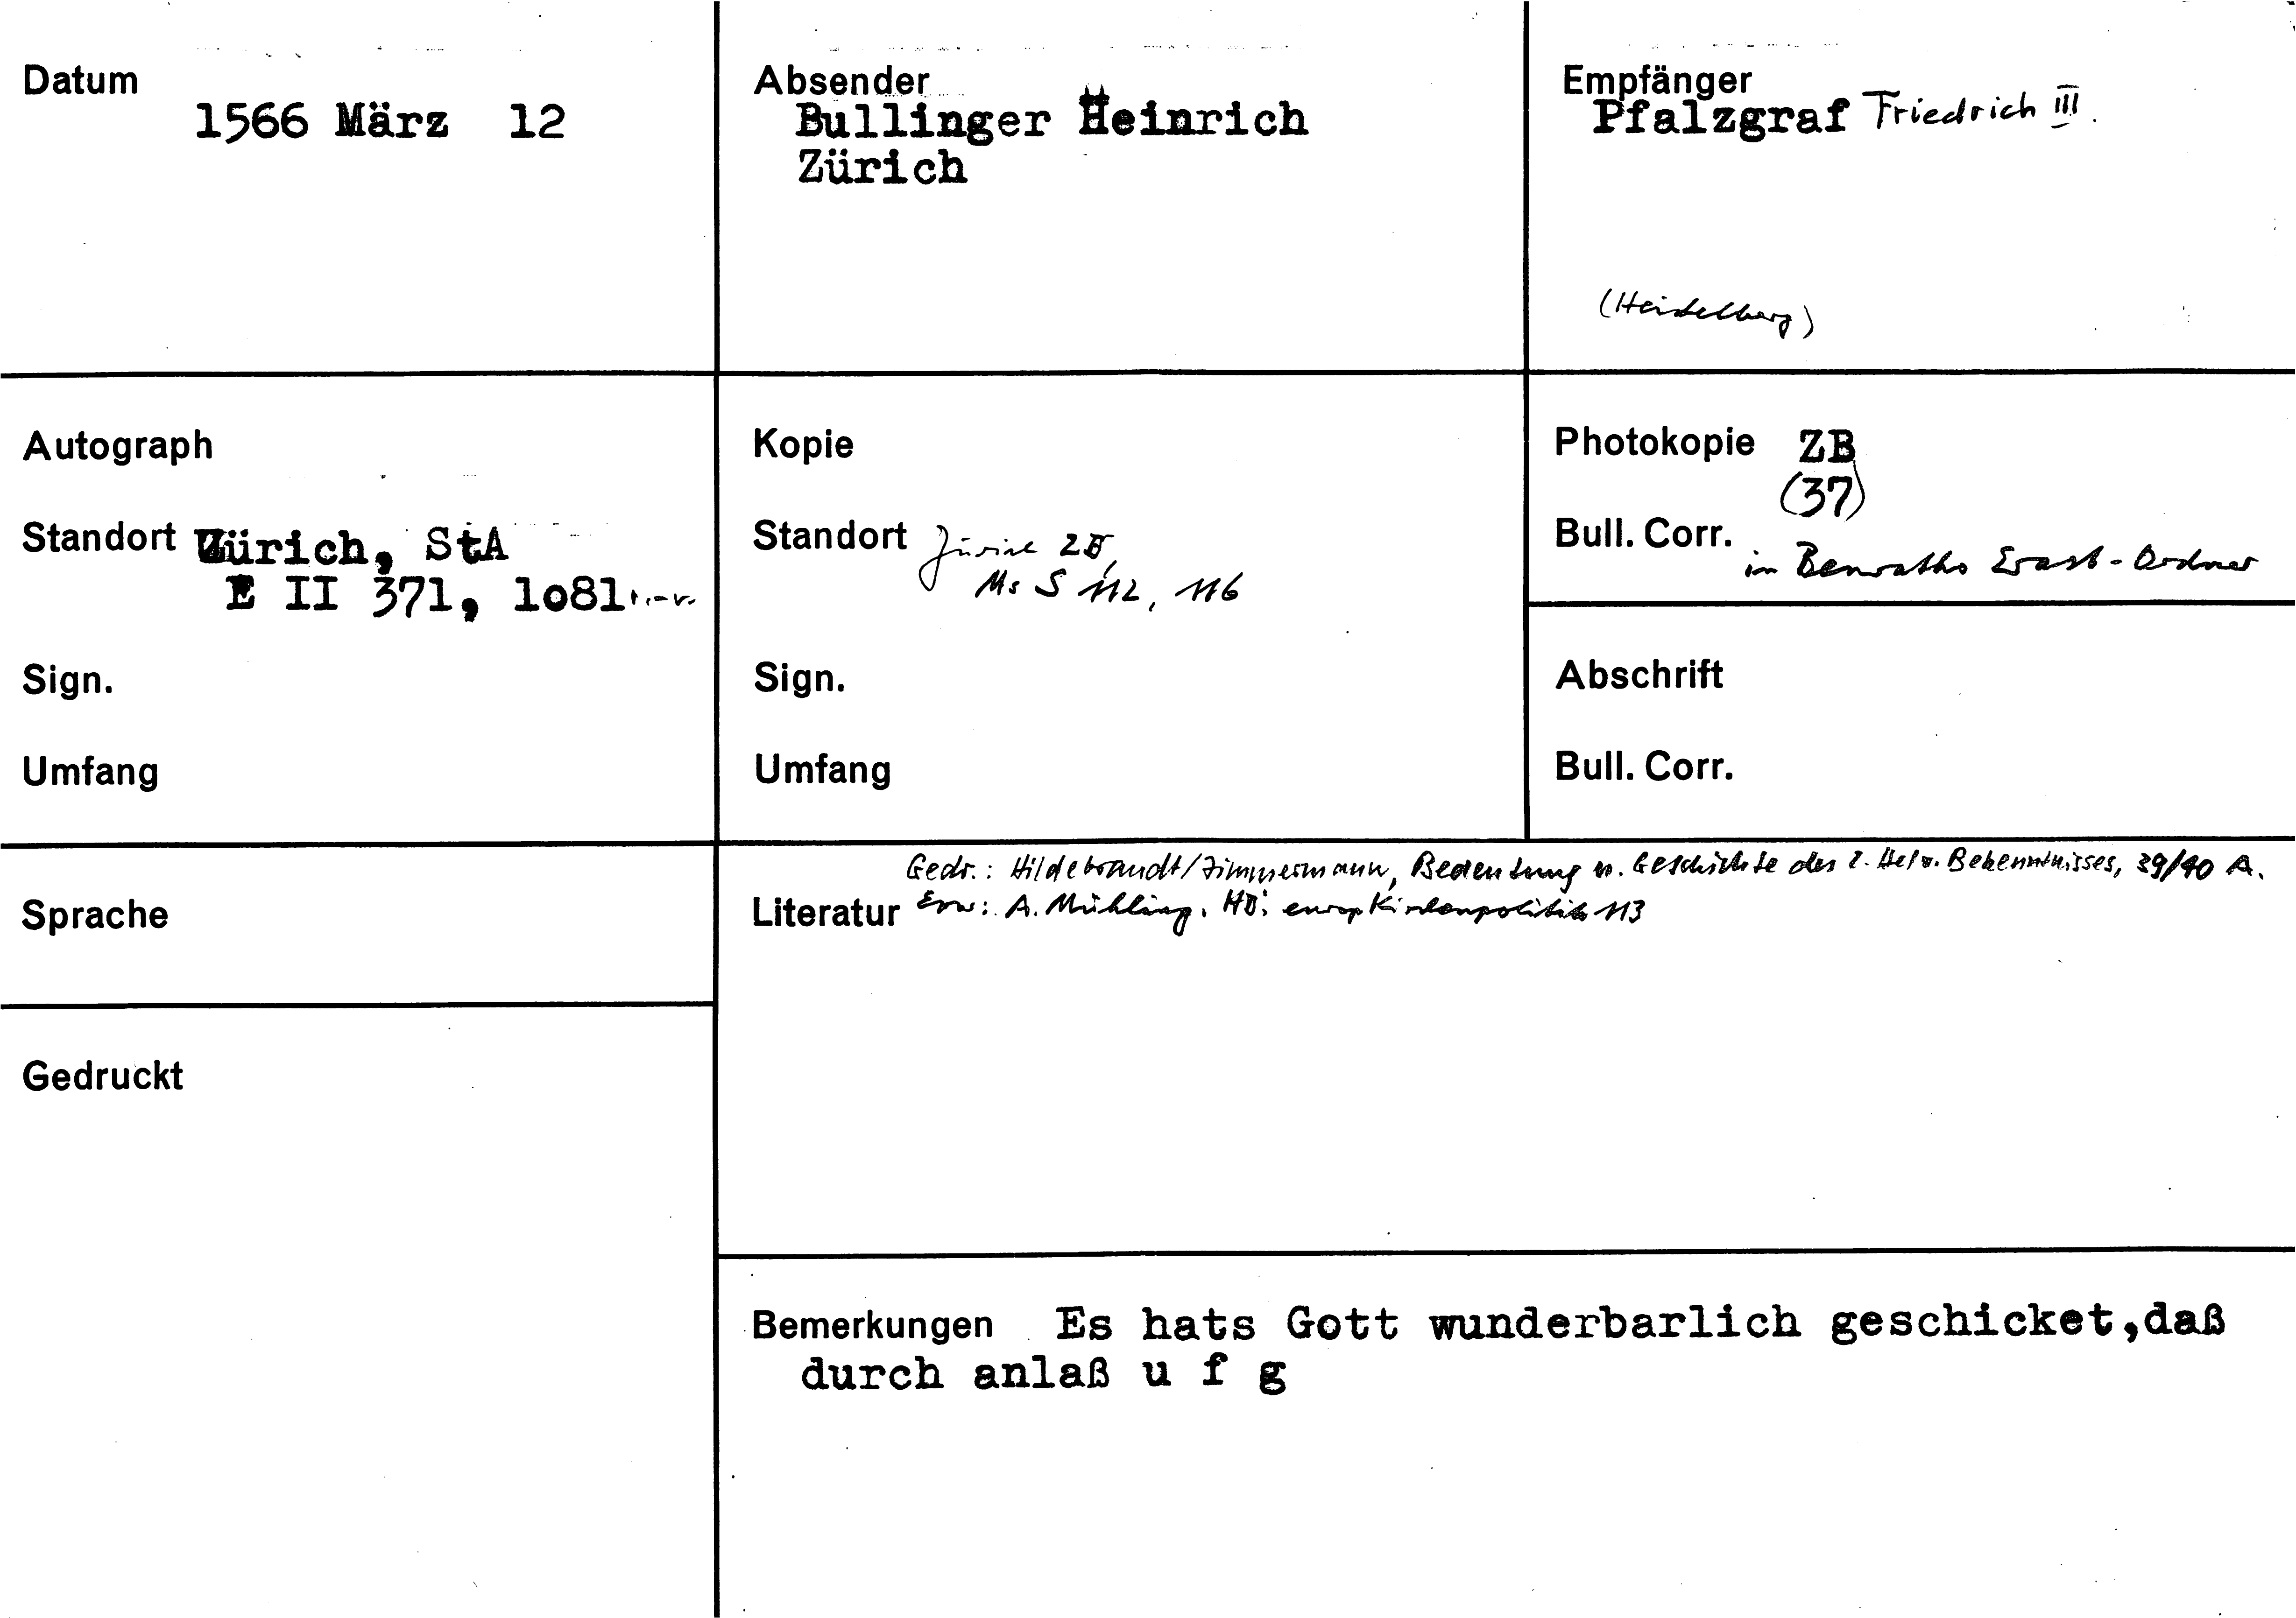 Datum
1566 März 12
Absender
Bullinger Heinrich
Zürich
Empfänger
Pfalzgraf Friedrich III.
(Heidelberg)
Autograph
Standort Zürich, StA
E II 371, 1o81r.-v.
Sign.
Umfang
Kopie
Standort Zürich ZB,
Ms S 112, 116
Sign.
Umfang
Photokopie ZB
(37)
Bull. Corr.
in Benraths Erast-Ordner
Abschrift
Bull. Corr.
Sprache
Gedruckt
Gedr.: Hildebrandt/Zimmermann, Bedeutung u. Geschichte des 2. Helv. Bekenntnisses, 39/40 A.
Literatur Erw: A. Mühling, HB's europ Kirchenpolitik 113
Bemerkungen Es hats Gott wunderbarlich geschicket,daß
durch anlaß u f g